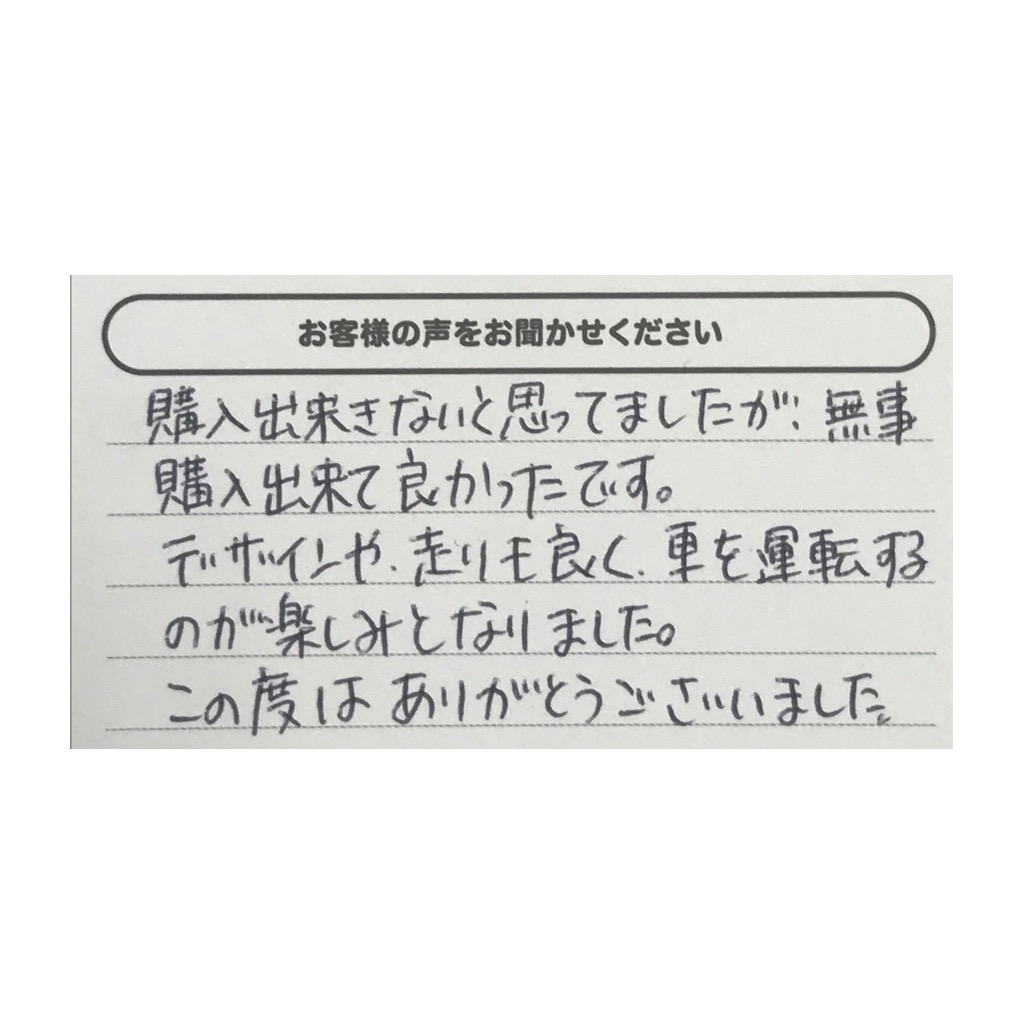 お客様の声をお聞かせください
購入出来きないと思ってましたが、無事
購入出来て良かったです。
デザインや、走りも良く、車を運転する
のが楽しみとなりました。
この度はありがとうございました。